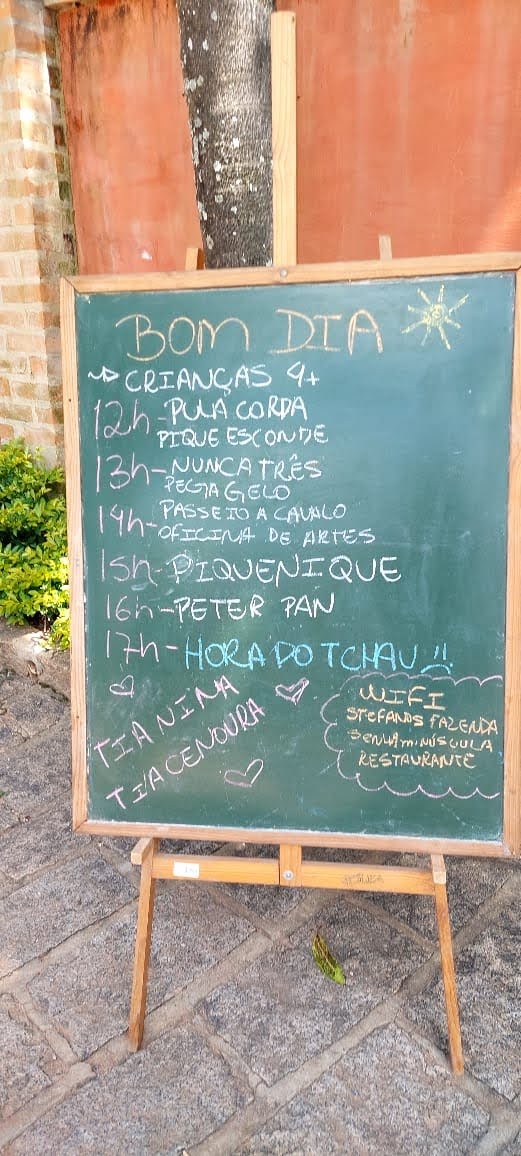 BOM DIA
CRIANÇAS 4+
12h - PULA CORDA
PIQUE ESCONDE
13h - NUNCA TRÊS
PEGA GELO
14h - PASSEIO A CAVALO
OFICINA DE ARTES
15h - PIQUENIQUE
16h - PETER PAN
17h - HORA DO TCHAU
TIA NINA
TIA CENOURA
WIFI
STEFANOS FAZENDA
SENHA MINÚSCULA
RESTAURANTE